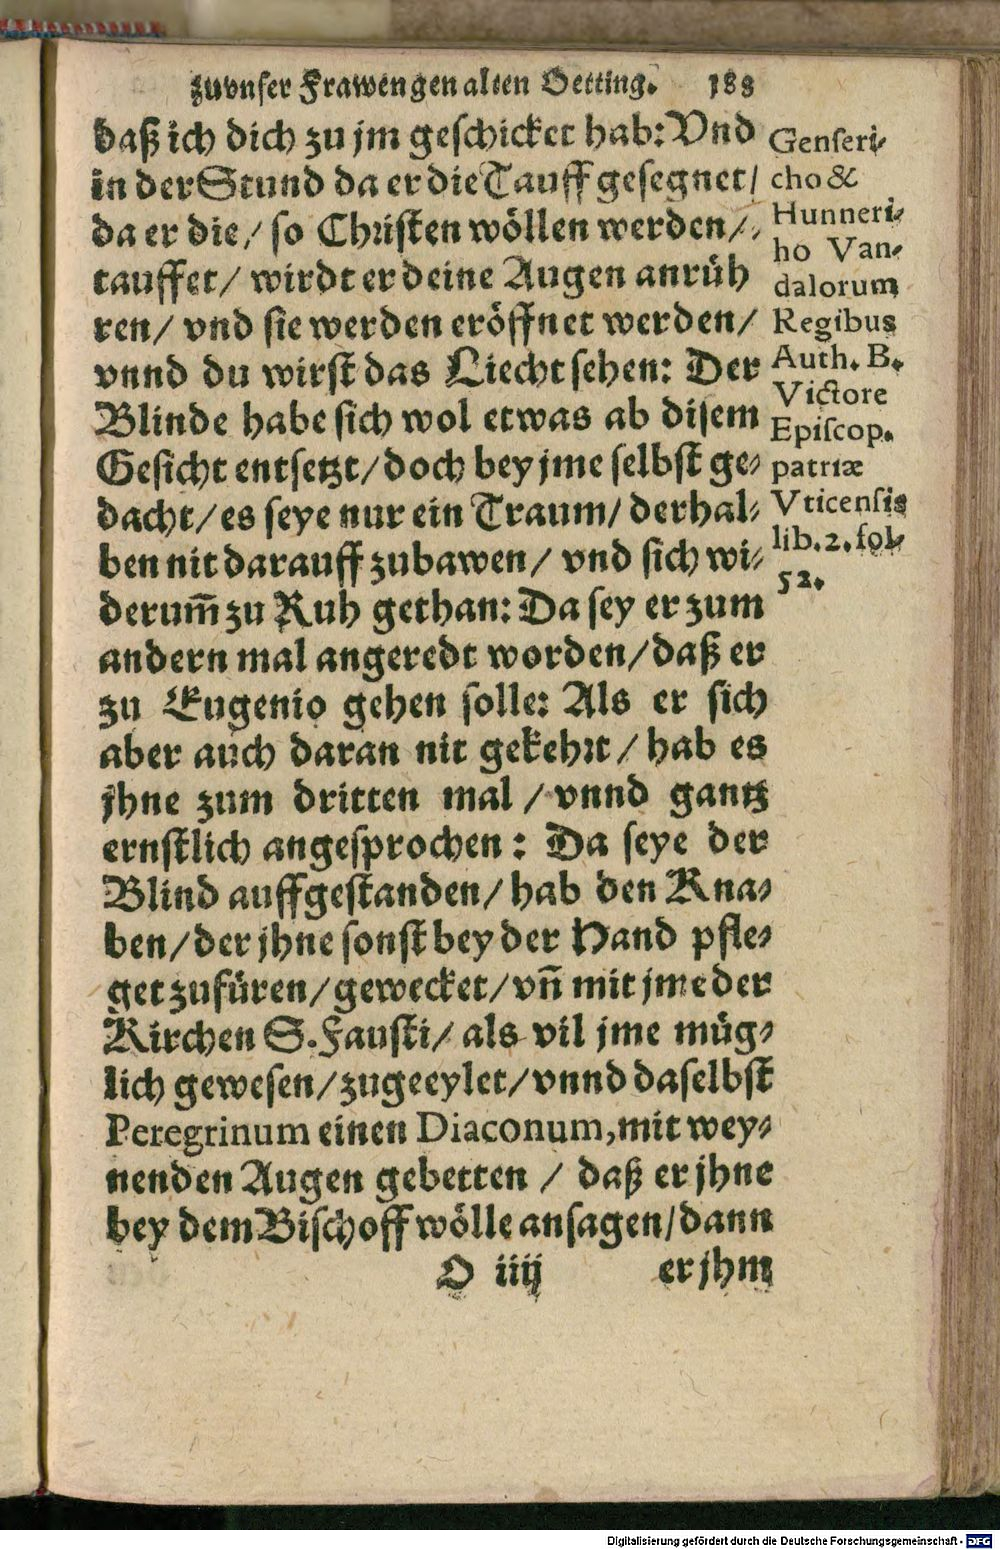 zuvnser Frawen gen alten Oetting. 183
daß ich dich zu jm geschicket hab: Vnd
in der Stund da er die Tauff gesegnet/
da er die/ so Christen wöllen werden/
tauffet/ wirdt er deine Augen anrüh
ren/ vnd sie werden eröffnet werden/
vnnd du wirst das Liecht sehen: Der
Blinde habe sich wol etwas ab disem
Gesicht entsetzt/ doch bey jme selbst ge-
dacht/ es seye nur ein Traum/ derhal-
ben nit darauff zubawen/ vnd sich wi-
derum̃ zu Ruh gethan: Da sey er zum
andern mal angeredt worden/ daß er
zu Eugenio gehen solle: Als er sich
aber auch daran nit gekehrt/ hab es
jhne zum dritten mal/ vnnd gantz
ernstlich angesprochen: Da seye der
Blind auffgestanden/ hab den Kna-
ben/ der jhne sonst bey der Hand pfle-
get zufüren/ gewecket/ vñ mit jme der
Kirchen S. Fausti/ als vil jme müg-
lich gewesen/ zugeeylet/ vnnd daselbst
Peregrinum einen Diaconum, mit wey-
nenden Augen gebetten/ daß er jhne
bey dem Bischoff wölle ansagen/ dann
O iiij er jhm
Genseri-
cho &
Hunneri-
ho Van-
dalorum
Regibus
Auth. B.
Victore
Episcop.
patriæ
Vticensis
lib. 2. fol.
52.
Digitalisierung gefördert durch die Deutsche Forschungsgemeinschaft - DFG